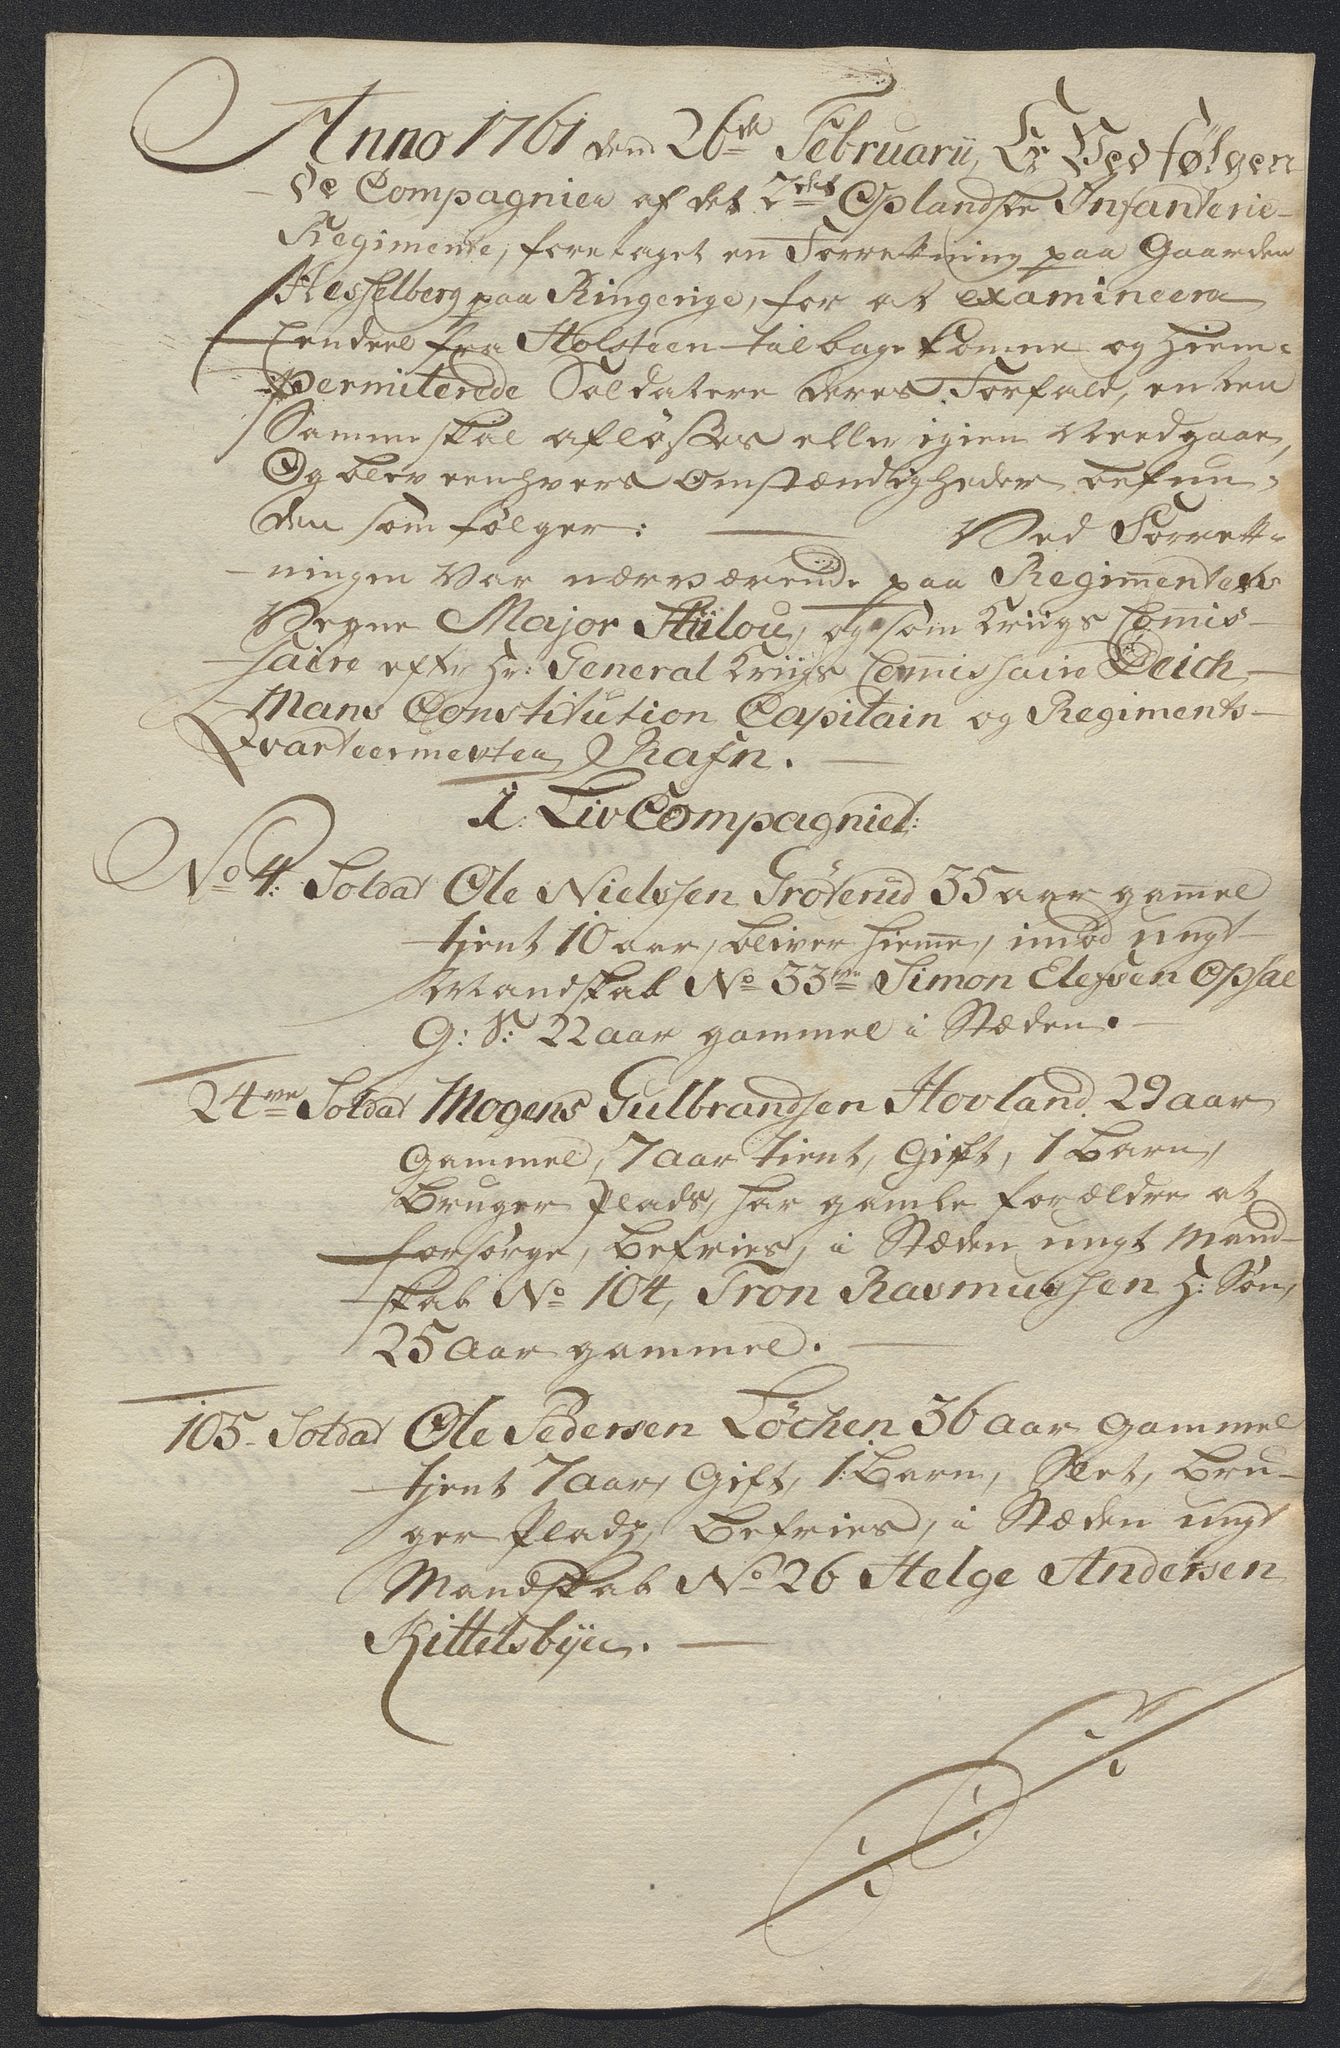 Anno 1761 den 26de Februarij, Er Ved følgen
de Compagnier af det 2det Oplandske Infanterie
Regimente, foretaget en Forretning paa Gaarden
Hesselberg paa Ringerige, for at examineere
Eendeel fra Holsteen tilbage komne og hiem-
permiterede Soldatere deres Forfald, enten
Samme skal afløsses eller igien Nedgaae,
Og blev eenhvers omstændigheder befun-
den som følger: Ved Forrett-
ningen var nærværende paa Regimentets
Vegne Major Hülou, og som Kriigs Com̄is
saire efter Hr: General Kriigs Com̄issaire Deich
Mans Constitution Capitain og Regiments
Qvarteermester Rafn.
1. LivCompagniet:
No 4: Soldat Ole Nielssen Grøterud 35 aar gam̄el
tjent 10 aar, bliver hiem̄e, imod ungt
Mandskab No 33ve Simon Elefsen Opsal
G: S: 22 aar gammel i Stæden.
24ve Soldat Mogens Gulbrandsen Hovland. 29 aar
Gammel, 7 aar tient, Gift, 1 Barn,
Bruger Plads, har gamle forældre at
forsørge, befries, i Stæden ungt Mand-
skab No 104, Tron Rasmussen H: Søn,
25 aar gammel.
105 Soldat Ole Pedersen Løchen 36 aar gammel
tjent 7 aar, Gift, 1: Barn, Slet, bru-
ger Pladz, befries, i Stæden ungt
Mandskab No 26 Helge Andersen
Kittelsbÿe.